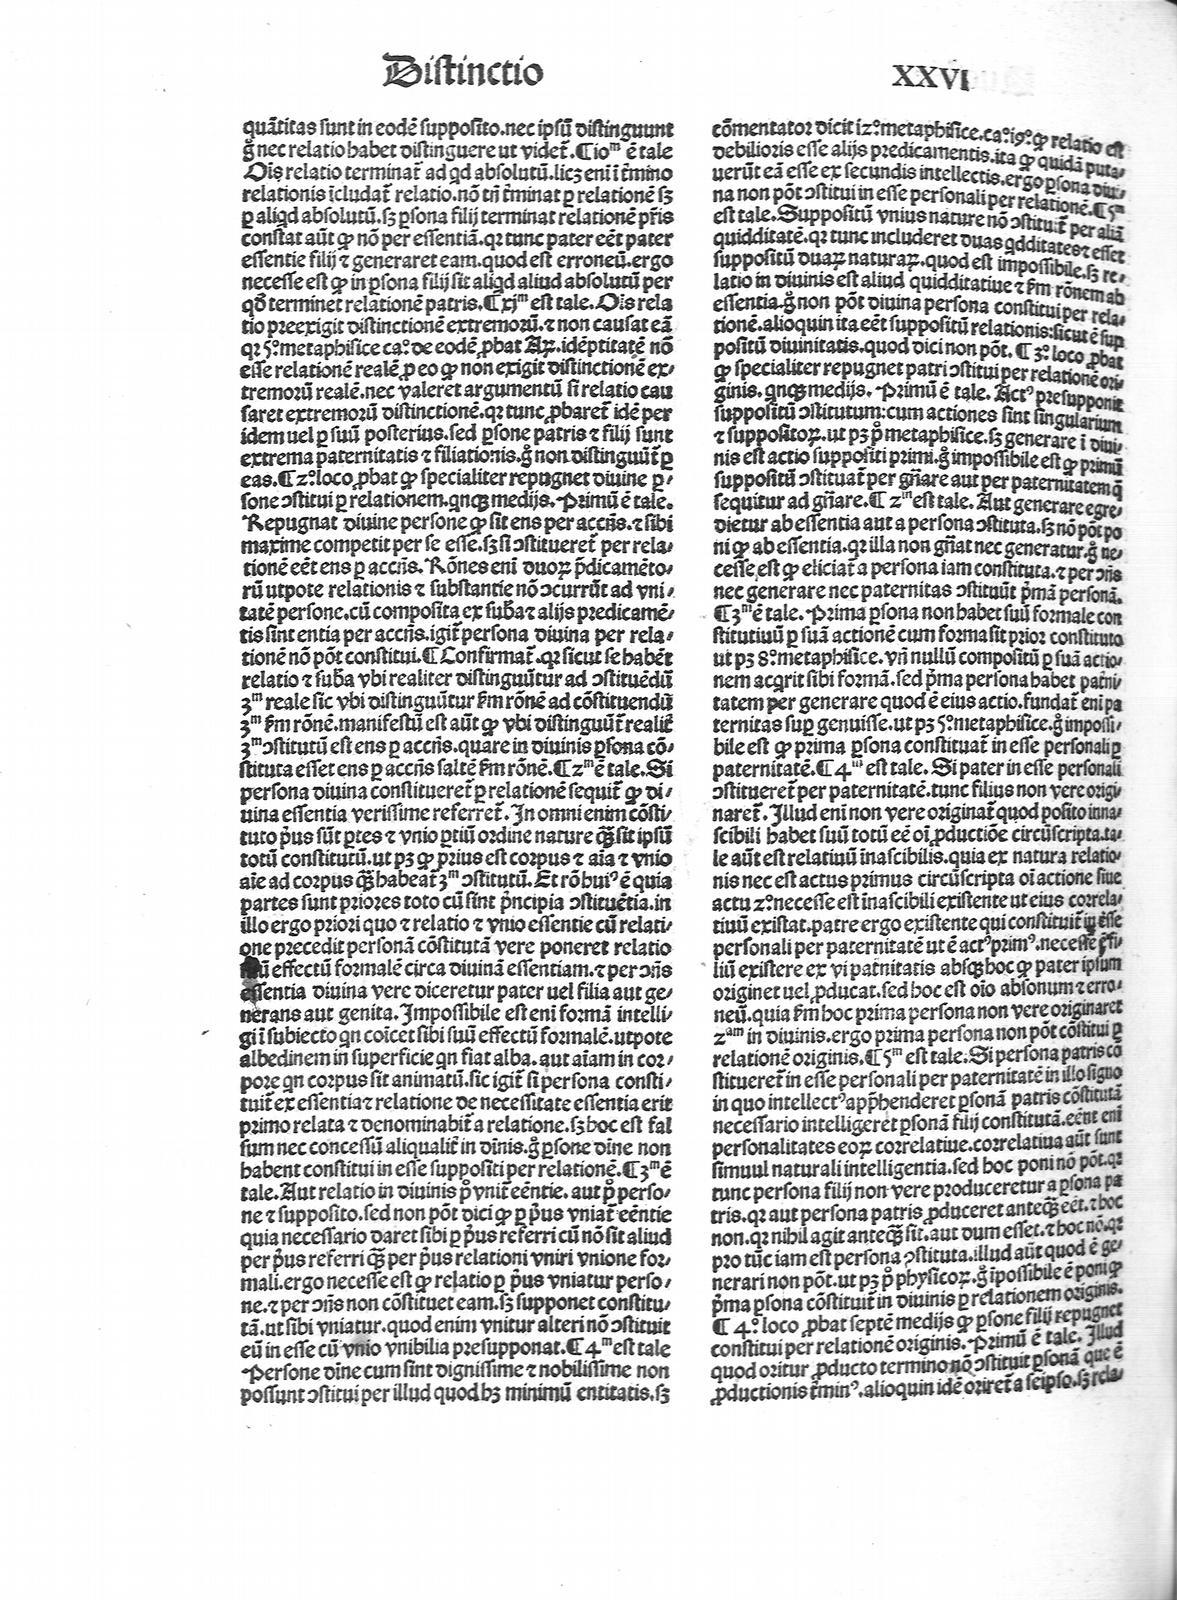 Distinctio
XXVI
quātitas sunt in eodē supposito.nec ipsū distinguunt
g̊ nec relatio habet distinguere ut videt̄. ¶ 10ᵐ ē tale
Oīs relatio terminat̄ ad qd absolutū.licꝫ eni ī t̄mino
relationis īcludat̄ relatio.nō tn̄ t̄minat ꝑ relationē sꝫ
ꝑ aliqd absolutū.sꝫ ꝑsona filij terminat relationē pr̄is
constat aūt ꝙ nō per essentiā.qꝛ tunc pater eēt pater
essentie filij ⁊ generaret eam.quod est erroneū.ergo
necesse est ꝙ in ꝑsona filij sit aliqd aliud absolutū per
qd̄ terminet relationē patris. ¶ xjᵐ est tale. Oīs rela
tio preexigit distinctionē extremoꝝ.⁊ non causat eā
qꝛ 5ᵒ.metaphisice caᵒ.de eodē ꝓbat Aꝝ.idēptitatē nō
esse relationē realē ꝓ eo ꝙ non exigit distinctionē ex⸗
tremorū realē.nec valeret argumentū si relatio cau
saret extremorū distinctionē.qꝛ tunc ꝓbaret̄ idē per
idem uel ꝑ suū posterius.sed ꝑsone patris ⁊ filij sunt
extrema paternitatis ⁊ filiationis.g̊ non distinguūt̄ ꝑ
eas. ¶ 2ᵒ.loco ꝓbat ꝙ specialiter repugnet diuine ꝑ⸗
sone ꝯstitui ꝑ relationem.qnqꝫ medijs. Primū ē tale.
Repugnat diuine persone ꝙ sit ens per accn̄s.⁊ sibi
maxime competit per se esse.sꝫ si ꝯstitueret̄ per rela⸗
tionē eēt ens ꝑ accn̄s. Rōnes eni duoꝝ p̄dicamēto⸗
rū utpote relationis ⁊ substantie nō ꝯcurrūt ad vni⸗
tatē persone.cū composita ex sub̄a ⁊ alijs predicamē⸗
tis sint entia per accn̄s.igit̄ persona diuina per rela⸗
tionē nō pōt constitui. ¶ Confirmat̄.qꝛ sicut se habēt
relatio ⁊ sub̄a vbi realiter distinguūtur ad ꝯstituēdū
3ᵐ reale sic vbi distinguūtur ẜm rōnē ad cōstituendū
3ᵐ ẜm rōnē.manifestū est aūt ꝙ vbi distinguūt̄ realit̄
3ᵐ ꝯstitutū est ens ꝑ accn̄s.quare in diuinis ꝑsona cō⸗
stituta esset ens ꝑ accn̄s saltē ẜm rōnē. ¶ 2ᵐ ē tale. Si
persona diuina constitueret̄ ꝑ relationē sequit̄ ꝙ di⸗
uina essentia verissime referret̄. In omni enim cōsti⸗
tuto p̄us sūt ꝑtes ⁊ vnio ꝑtiū ordine nature qꝫ̄ sit ipsū
totū constitutū.ut pꝫ ꝙ prius est corpus ⁊ aīa ⁊ vnio
aīe ad corpus qꝫ̄ habeat̄ 3ᵐ ꝯstitutū. Et rō huiᵘ ē quia
partes sunt priores toto cū sint p̄ncipia ꝯstituētia.in
illo ergo priori quo ⁊ relatio ⁊ vnio essentie cū relati⸗
one precedit personā cōstitutā vere poneret relatio
suū effectū formalē circa diuinā essentiam.⁊ per ꝯn̄s
essentia diuina vere diceretur pater uel filia aut ge⸗
nerans aut genita. Impossibile est eni formā intelli⸗
gi ī subiecto qn coīcet sibi suū effectū formalē.utpote
albedinem in superficie qn fiat alba.aut aīam in cor⸗
pore qn corpus sit animatū.sic igit̄ si persona consti⸗
tuit̄ ex essentia ⁊ relatione de necessitate essentia erit
primo relata ⁊ denominabit̄ a relatione.sꝫ hoc est fal
sum nec concessū aliqualit̄ in dīnis.g̊ ꝑsone dīne non
habent constitui in esse suppositi per relationē. ¶ 3ᵐ ē
tale. Aut relatio in diuinis p̊ vnit̄ eēntie.aut p̊ perso⸗
ne ⁊ supposito.sed non pōt dici ꝙ ꝑ p̄us vniat̄ eēntie
quia necessario daret sibi ꝑ p̄us referri cū nō sit aliud
per p̄us referri qꝫ̄ per p̄us relationi vniri vnione for⸗
mali.ergo necesse est ꝙ relatio ꝑ p̄us vniatur perso⸗
ne.⁊ per ꝯn̄s non cōstituet eam.sꝫ supponet constitu⸗
tā.ut sibi vniatur.quod enim vnitur alteri nō ꝯstituit
eū in esse cū vnio vnibilia presupponat. ¶ 4ᵐ est tale
Persone dīne cum sint dignissime ⁊ nobilissime non
possunt ꝯstitui per illud quod hꝫ minimū entitatis.sꝫ
cōmentator dicit 12ᵒ.metaphisice.caᵒ.19ᵒ.ꝙ relatio est
debilioris esse alijs predicamentis.ita ꝙ quidā puta⸗
uerūt eā esse ex secundis intellectis.ergo ꝑsona diui⸗
na non pōt ꝯstitui in esse personali per relationē. ¶ 5ᵐ
est tale. Suppositū vnius nature nō ꝯstituit̄ per aliā
quidditatē.qꝛ tunc includeret duas qdditates ⁊ esset
suppositū duaꝝ naturaꝝ.quod est impossibile.sꝫ re⸗
latio in diuinis est aliud quidditatiue ⁊ ẜm rōnem ab
essentia.g̊ non pōt diuina persona constitui per rela⸗
tionē.alioquin ita eēt suppositū relationis:sicut ē sup
positū diuinitatis.quod dici non pōt. ¶ 3ᵒ.loco ꝓbat
ꝙ specialiter repugnet patri ꝯstitui per relationē ori⸗
ginis.qnqꝫ medijs. Primū ē tale. Actᵘ presupponit
suppositū ꝯstitutum:cum actiones sint singularium
⁊ suppositoꝝ.ut pꝫ p̊ metaphisice.sꝫ generare ī diui⸗
nis est actio suppositi primi.g̊ impossibile est ꝙ primū
suppositū ꝯstituat̄ per gn̄are aut per paternitatem q̄
sequitur ad gn̄are. ¶ 2ᵐ est tale. Aut generare egre⸗
dietur ab essentia aut a persona ꝯstituta.sꝫ nō pōt po
ni ꝙ ab essentia.qꝛ illa non gn̄at nec generatur.g̊ ne⸗
cesse est ꝙ eliciat̄ a persona iam constituta.⁊ per ꝯn̄s
nec generare nec paternitas ꝯstituūt p̄mā personā.
¶ 3ᵐ ē tale. Prima ꝑsona non habet suū formale con
stitutiuū ꝑ suā actionē cum forma sit prior constituto
ut pꝫ 8ᵒ.metaphisice.vn̄ nullū compositū ꝑ suā actio⸗
nem acqrit sibi formā.sed p̄ma persona habet pat̄ni⸗
tatem per generare quod ē eius actio.fundat̄ eni pa
ternitas suꝑ genuisse.ut pꝫ 5ᵒ.metaphisice.g̊ impossi⸗
bile est ꝙ prima ꝑsona constituat̄ in esse personali ꝑ
paternitatē. ¶ 4ᵐ est tale. Si pater in esse personali
ꝯstitueret̄ per paternitatē.tunc filius non vere origi⸗
naret̄. Illud eni non vere originat̄ quod posito inna⸗
scibili habet suū totū eē oī ꝓductiōe circūscripta.ta⸗
le aūt est relatiuū inascibilis.quia ex natura relatio⸗
nis nec est actus primus circūscripta oī actione siue
actu 2ᵒ.necesse est inascibili existente ut eius correla⸗
tiuū existat.patre ergo existente qui constituit̄ in esse
personali per paternitatē ut ē actᵘ primᵘ.necesse ē fi⸗
liū existere ex vi pat̄nitatis absqꝫ hoc ꝙ pater ipsum
originet uel ꝓducat.sed hoc est oīo absonum ⁊ erro⸗
neū.quia ẜm hoc prima persona non vere originaret
2ᵃᵐ in diuinis.ergo prima persona non pōt cōstitui ꝑ
relationē originis. ¶ 5ᵐ est tale. Si persona patris cō
stitueret̄ in esse personali per paternitatē in illo signo
in quo intellectᵘ app̄henderet ꝑsonā patris cōstitutā
necessario intelligeret ꝑsonā filij constitutā.eēnt eni
personalitates eoꝝ correlatiue.correlatiua aūt sunt
simuul naturali intelligentia.sed hoc poni nō pōt.qꝛ
tunc persona filij non vere produceretur a ꝑsona pa
tris.qꝛ aut persona patris ꝓduceret anteqꝫ̄ eēt.⁊ hoc
non.qꝛ nihil agit anteqꝫ̄ sit.aut dum esset.⁊ hoc nō.qꝛ
pro tūc iam est persona ꝯstituta.illud aūt quod ē ge⸗
nerari non pōt.ut pꝫ p̊ physicoꝝ.g̊ īpossibile ē poni ꝙ
p̄ma ꝑsona cōstituit̄ in diuinis ꝑ relationem originis.
¶ 4ᵒ.loco ꝓbat septē medijs ꝙ ꝑsone filij repugnet
constitui per relationē originis. Primū ē tale. Illud
quod oritur ꝓducto termino nō ꝯstituit ꝑsonā que ē
ꝓductionis t̄minᵘ.alioquin idē oriret̄ a seipso.sꝫ rela⸗